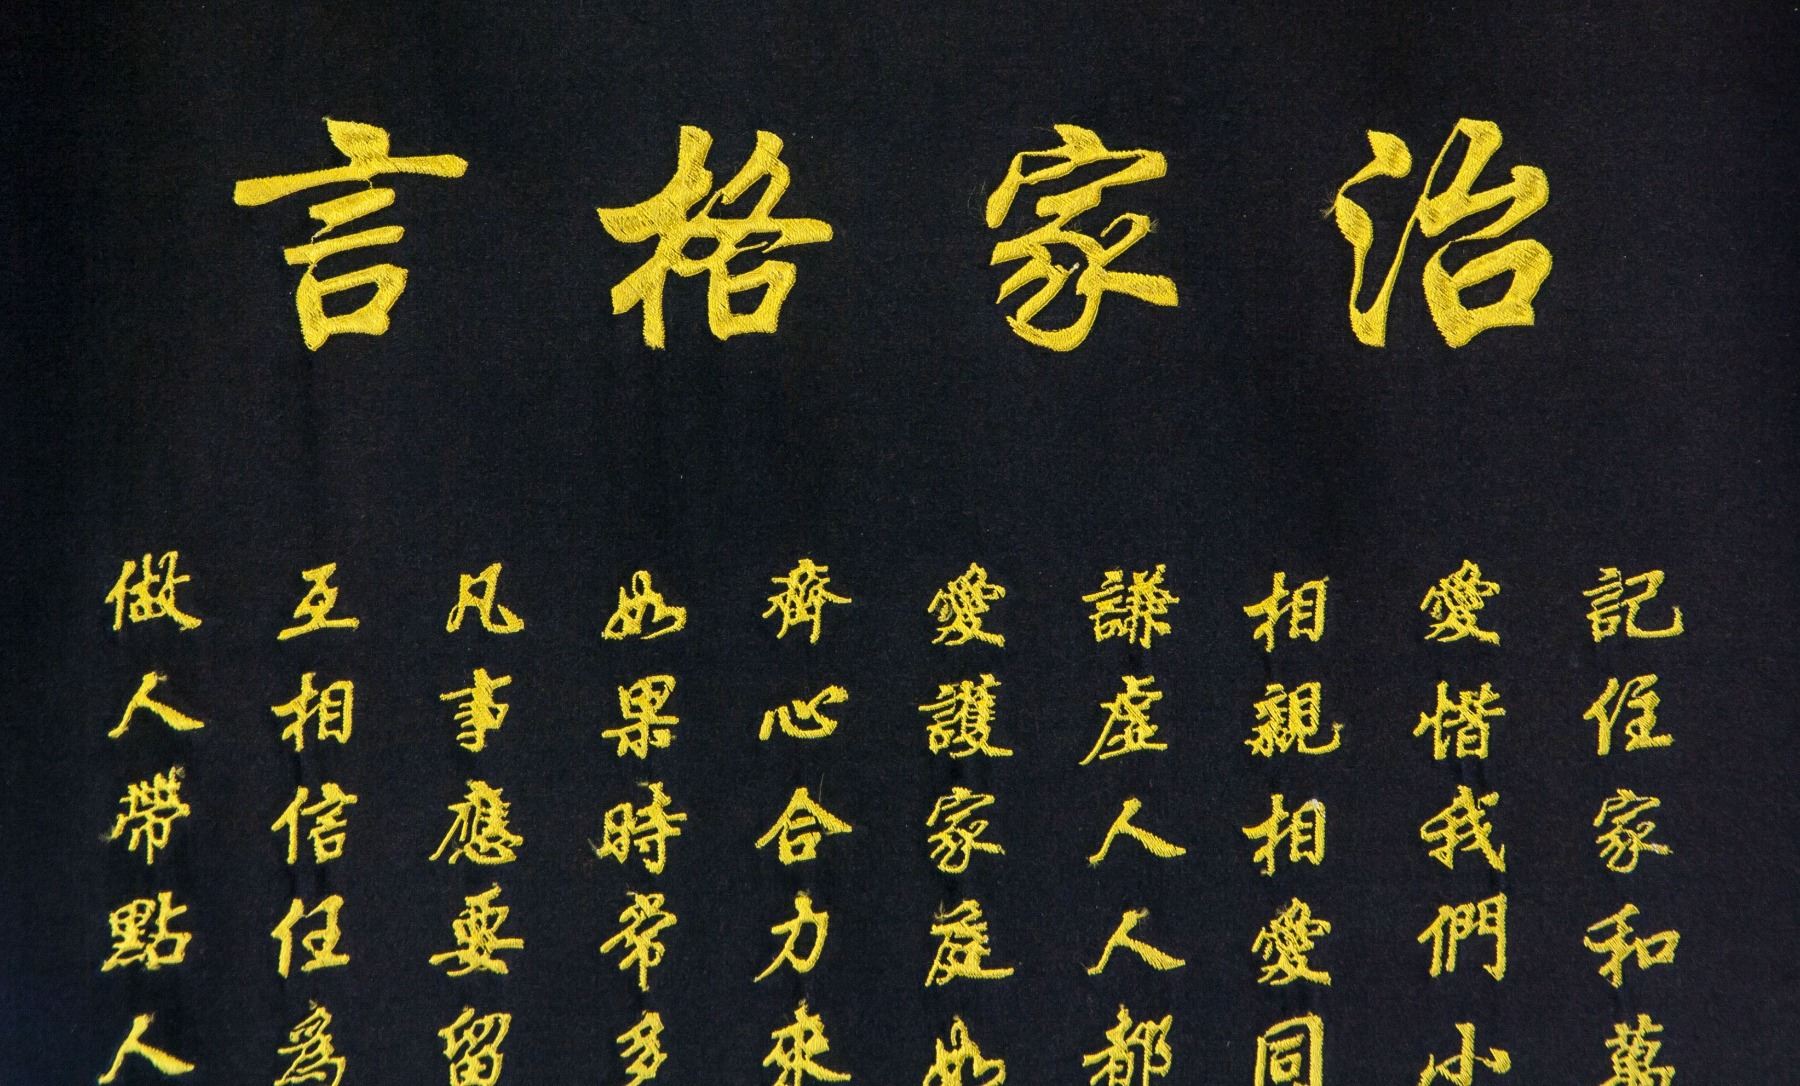 治家格言
記住家和萬
愛惜我們小
相親相愛同
謙虛人人都
愛護家庭如
齊心合力來
如果時常多
凡事應要留
互相信任為
做人帶點人